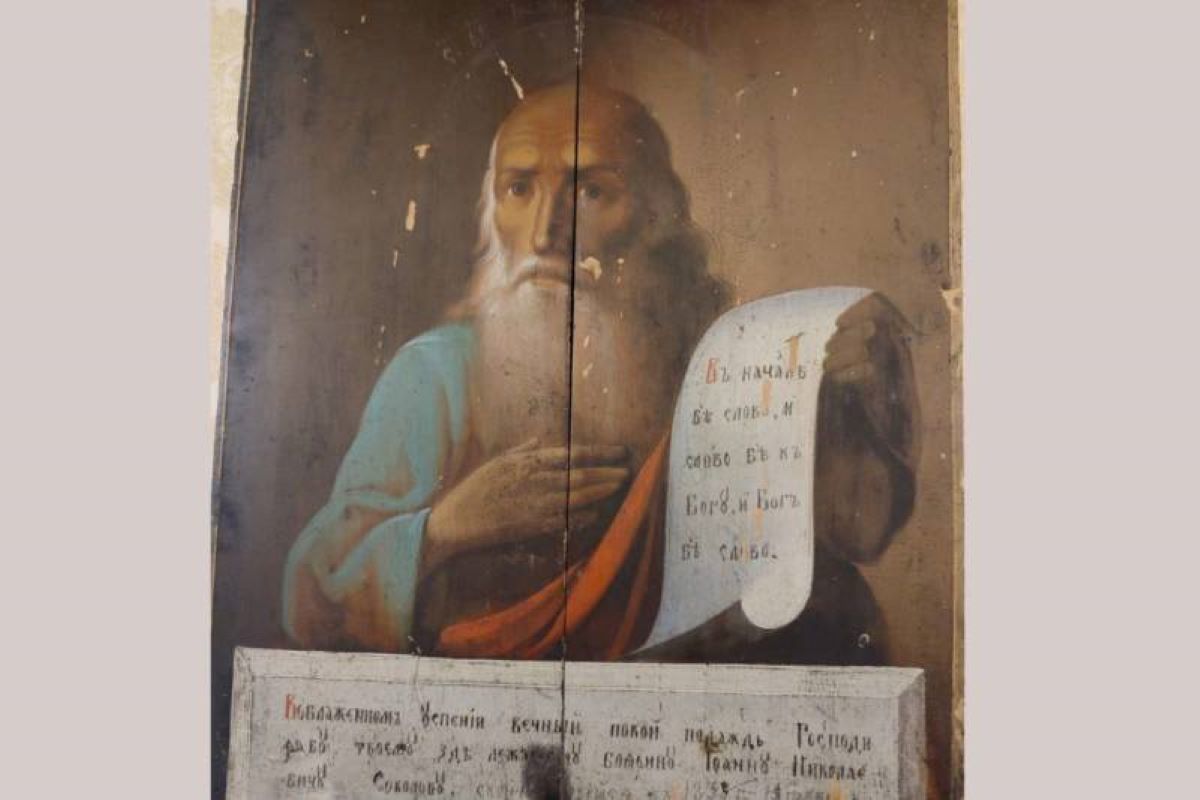 Въ началѣ
бѣ слово, и
слово бѣ къ
Богꙋ, и Богъ
бѣ слово.
Воблаженномъ ꙋспенїи вечный покой подаждь Господи
рабꙋ твоемꙋ здѣ лежащемꙋ Іоаннꙋ Николае
вичꙋ Соколовꙋ,